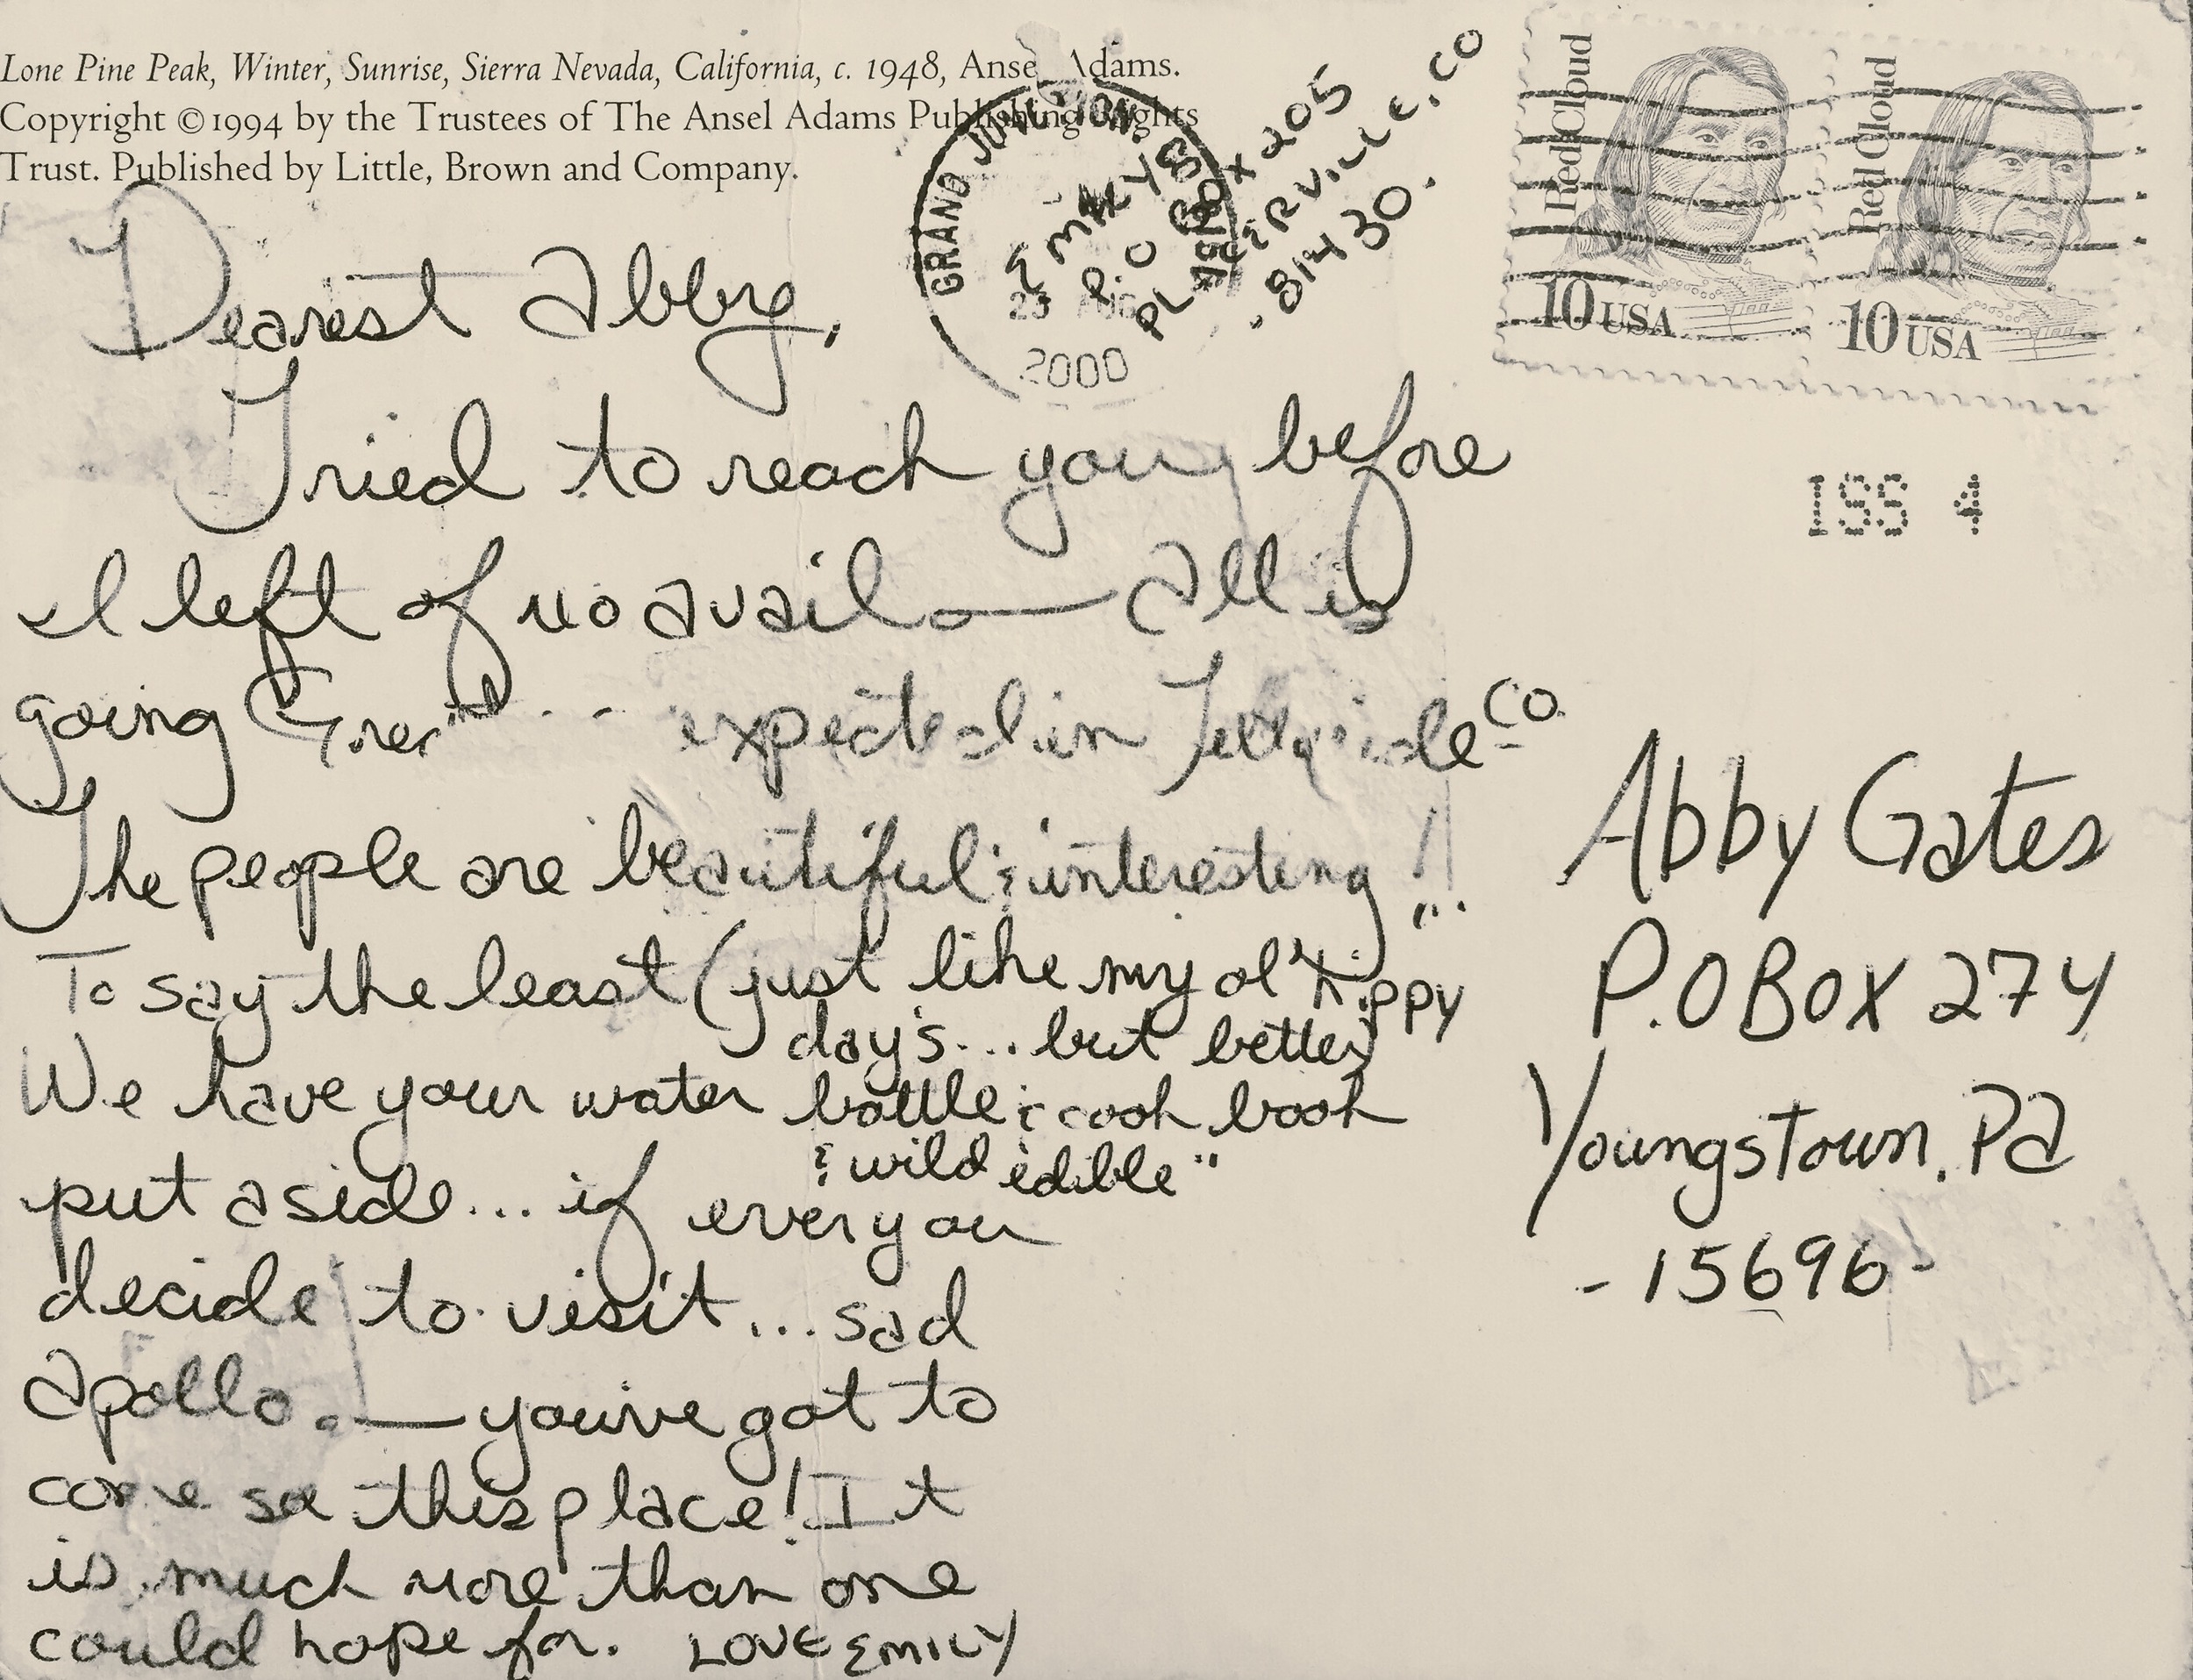 Lone Pine Peak, Winter, Sunrise, Sierra Nevada, California, c. 1948, Ansel Adams.
Copyright © 1994 by the Trustees of The Ansel Adams Publishing Rights
Trust. Published by Little, Brown and Company.
GRAND JUNCTION
25 AUG
2000
P.O Box 205
PLACERVILLE, CO
- 81430 -
Red Cloud
10 USA
Red Cloud
10 USA
ISS 4
Dearest Abby,
Tried to reach you before
I left of no avail — All is
going Great... expected in Telluride CO.
The people are beautiful & interesting!...
To say the least (just like my ol' hippy
days... but better)
We have your water bottle & cook book
& wild edible"
put aside... if ever you
decide to visit... sad
Apollo. — you've got to
come see this place! It
is much more than one
could hope for. LOVE EMILY
Abby Gates
P.O Box 274
Youngstown, Pa
- 15696 -